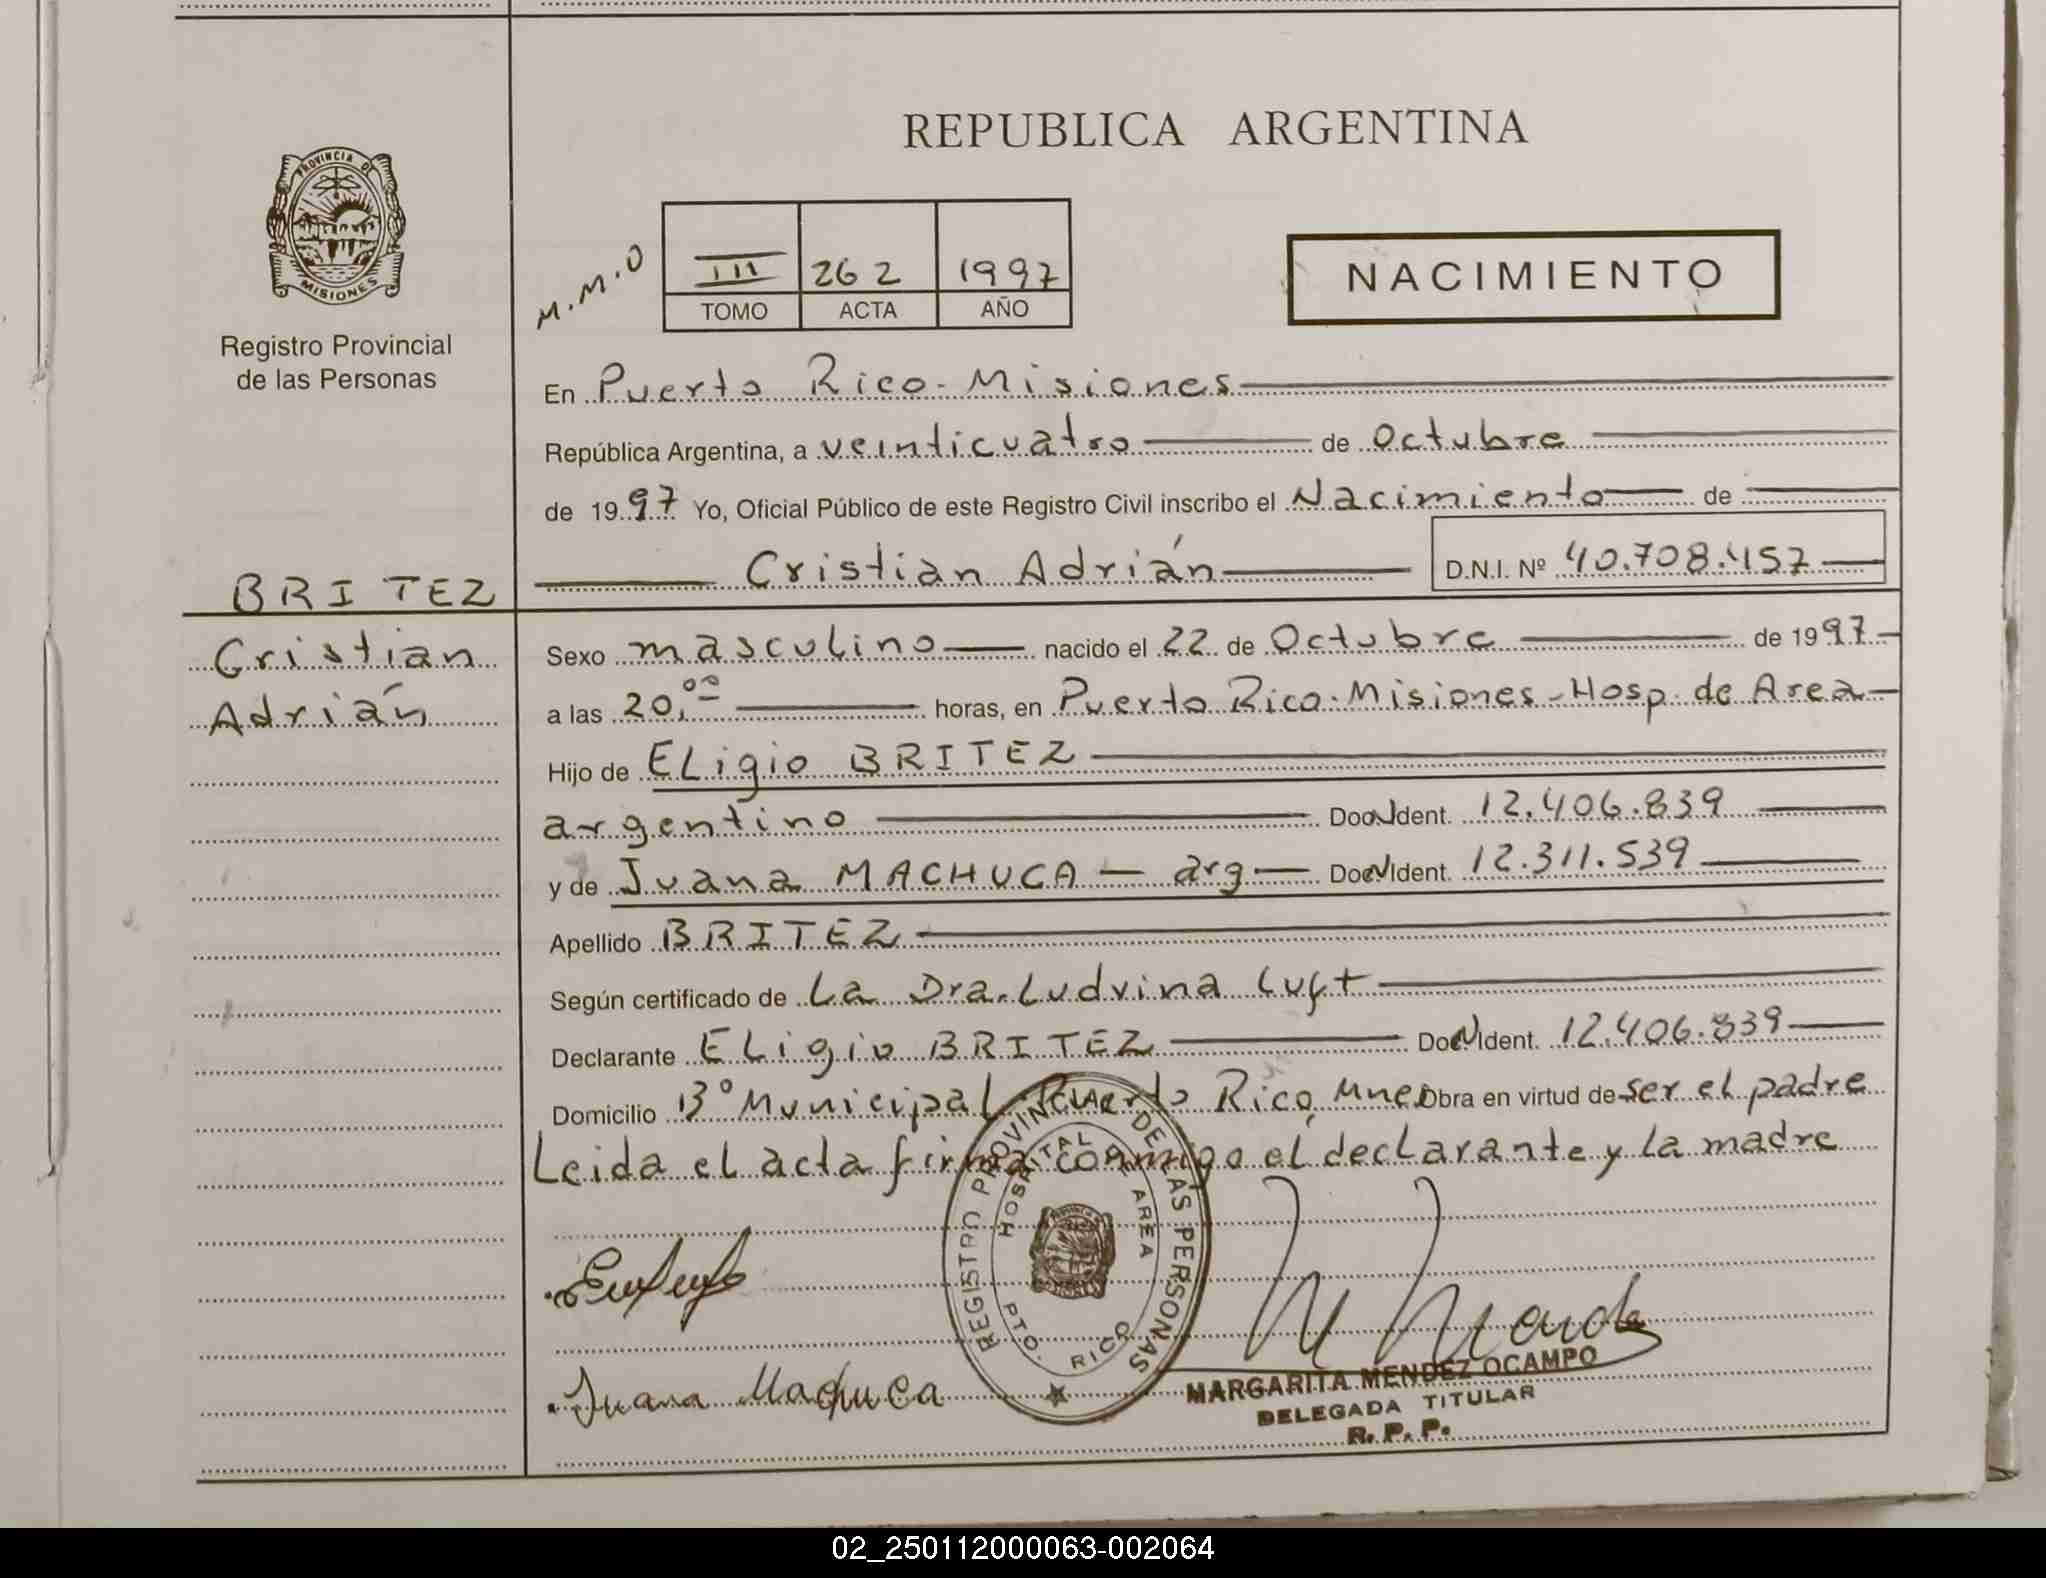 REPUBLICA ARGENTINA
PROVINCIA DE
MISIONES
Registro Provincial
de las Personas
M.M.O
III 262 1997
TOMO ACTA AÑO
NACIMIENTO
En Puerto Rico-Misiones
República Argentina, a veinticuatro de Octubre
de 1997 Yo, Oficial Público de este Registro Civil inscribo el Nacimiento de
BRITEZ
Cristian Adrián D.N.I. Nº 40.708.457
Cristian
Adrián
Sexo masculino nacido el 22 de Octubre de 1997
a las 20,00 horas, en Puerto Rico-Misiones-Hosp. de Area
Hijo de ELigio BRITEZ
argentino Doc. Ident. 12.406.839
y de Juana MACHUCA - arg - Doc. Ident. 12.311.539
Apellido BRITEZ
Según certificado de La Dra. Ludvina Luft
Declarante ELigio BRITEZ Doc. Ident. 12.406.839
Domicilio Bº Municipal Puerto Rico, Mnes Obra en virtud de ser el padre
Leida el acta firma conmigo el declarante y la madre
REGISTRO PROVINCIAL DE LAS PERSONAS
HOSPITAL DE AREA
PTO. RICO
Juana Machuca
MARGARITA MENDEZ OCAMPO
DELEGADA TITULAR
R. P. P.
02_250112000063-002064